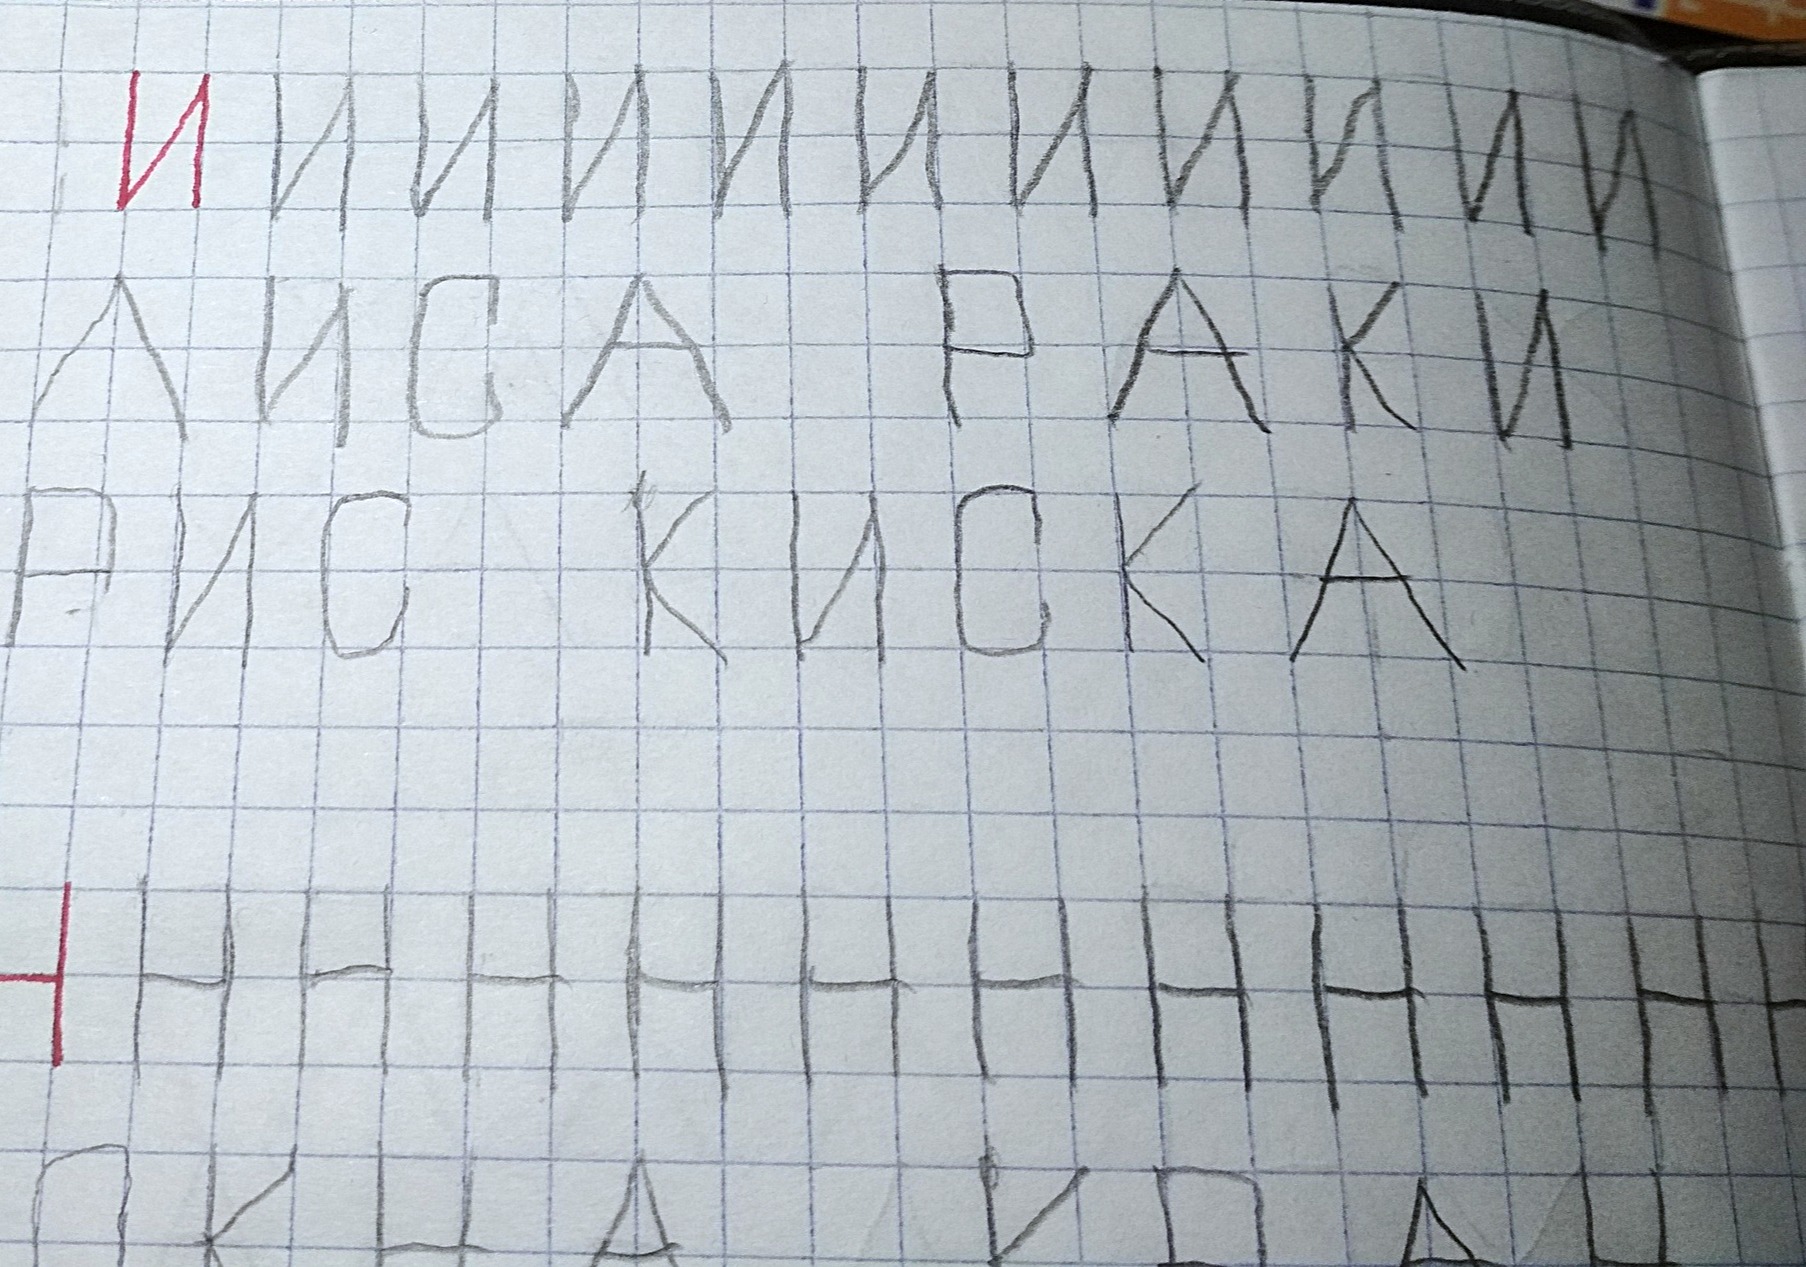 И И И И И И И И И И И
ЛИСА РАКИ
РИС КИСКА
Н Н Н Н Н Н Н Н Н Н Н Н
ОКНА КРАН